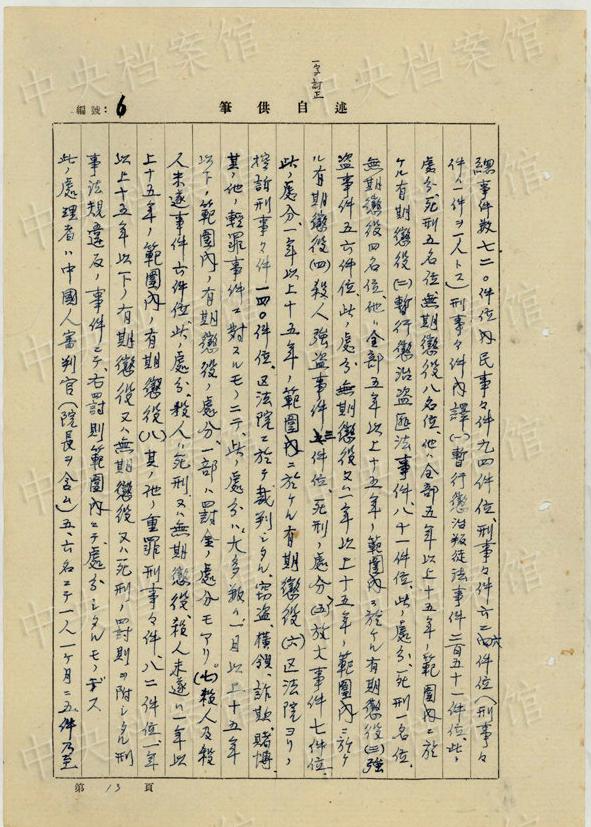 一字訂正
編號：6
筆供自述
總事件数七二〇件位内民事々件九四件位、刑事々件六二六件位（刑事々
件ハ一件ヲ一人トス）刑事々件内譯（一）暫行懲治叛徒法事件二百五十一件位、此ノ
處分、死刑五名位、無期懲役八名位、他ハ全部五年以上十五年ノ範圍内ニ於
ケル有期懲役（二）暫行懲治盗匪法事件八十一件位、此ノ處分、死刑一名位、
無期懲役四名位、他ハ全部五年以上十五年ノ範圍内ニ於ケル有期懲役（三）強
盗事件五六件位、此ノ處分、無期懲役又ハ一年以上十五年ノ範圍内ニ於ケ
ル有期懲役（四）殺人強盗事件三件位、死刑ノ處分（五）放火事件七件位、
此ノ處分一年以上十五年ノ範圍内ニ於ケル有期懲役（六）区法院ヨリノ
控訴刑事々件一四〇件位、区法院ニ於テ裁判シタル、窃盗、横領、詐欺、賭博、
其ノ他ノ輕罪事件ニ對スルモノニテ、此ノ處分ハ大多数ハ一月以上十五年
以下ノ範圍内ノ有期懲役ノ處分、一部ハ罰金ノ處分モアリ。（七）殺人及殺
人未遂事件六件位、此ノ處分、殺人ハ死刑又ハ無期懲役、殺人未遂ハ一年以
上十五年ノ範圍内ノ有期懲役（八）其ノ他ノ重罪刑事々件八二件位、一年
以上十五年以下ノ有期懲役又ハ無期懲役又ハ死刑ノ罰則ヲ附シタル刑
事法規違反ノ事件ニテ、右罰則範圍内ニテ處分シタルモノデス
此ノ處理者ハ中國人審判官（院長ヲ含ム）五、六名ニテ一人一ケ月二五件乃至
第 13 頁
中央档案馆